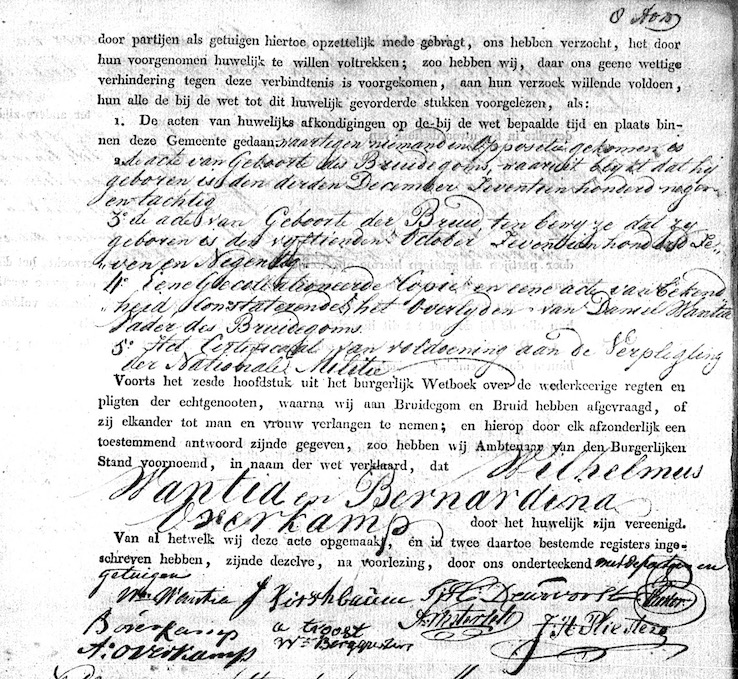 door partijen als getuigen hiertoe opzettelijk mede gebragt, ons hebben verzocht, het door
hun voorgenomen huwelijk te willen voltrekken; zoo hebben wij, daar ons geene wettige
verhindering tegen deze verbindtenis is voorgekomen, aan hun verzoek willende voldoen,
hun alle de bij de wet tot dit huwelijk gevorderde stukken voorgelezen, als:
1. De acten van huwelijks afkondigingen op de bij de wet bepaalde tijd en plaats bin-
nen deze Gemeente gedaan: waartegen niemand in Oppositie gekomen is
2 de acte van Geboorte des Bruidegoms, waaruit blijkt dat hij
geboren is den derden December Zeventien honderd negen
en tachtig
3º de acte van Geboorte der Bruid ten bewyze dat zy
geboren is den vyftienden October Zeventien honderd Ze-
ven en Negentig
4º eene Gecollationeerde Copie en eene acte van bekend
heid Constaterende het Overlyden van Daniel Wantia
Vader des Bruidegoms
5º Het Certificaat van voldoening aan de Verpligting
der Nationale Militie
Voorts het zesde hoofdstuk uit het burgerlijk Wetboek over de wederkeerige regten en
pligten der echtgenooten, waarna wij aan Bruidegom en Bruid hebben afgevraagd, of
zij elkander tot man en vrouw verlangen te nemen; en hierop door elk afzonderlijk een
toestemmend antwoord zijnde gegeven, zoo hebben wij Ambtenaar van den Burgerlijken
Stand voornoemd, in naam der wet verklaard, dat Wilhelmus
Wantia en Bernardina
Overkamp door het huwelijk zijn vereenigd.
Van al hetwelk wij deze acte opgemaakt, en in twee daartoe bestemde registers inge-
schreven hebben, zijnde dezelve, na voorlezing, door ons onderteekend met de partijen en
getuigen
Wm Wantia J Kirshbaum
B overkamp a troost
A: overkamp Wm Bergquesten